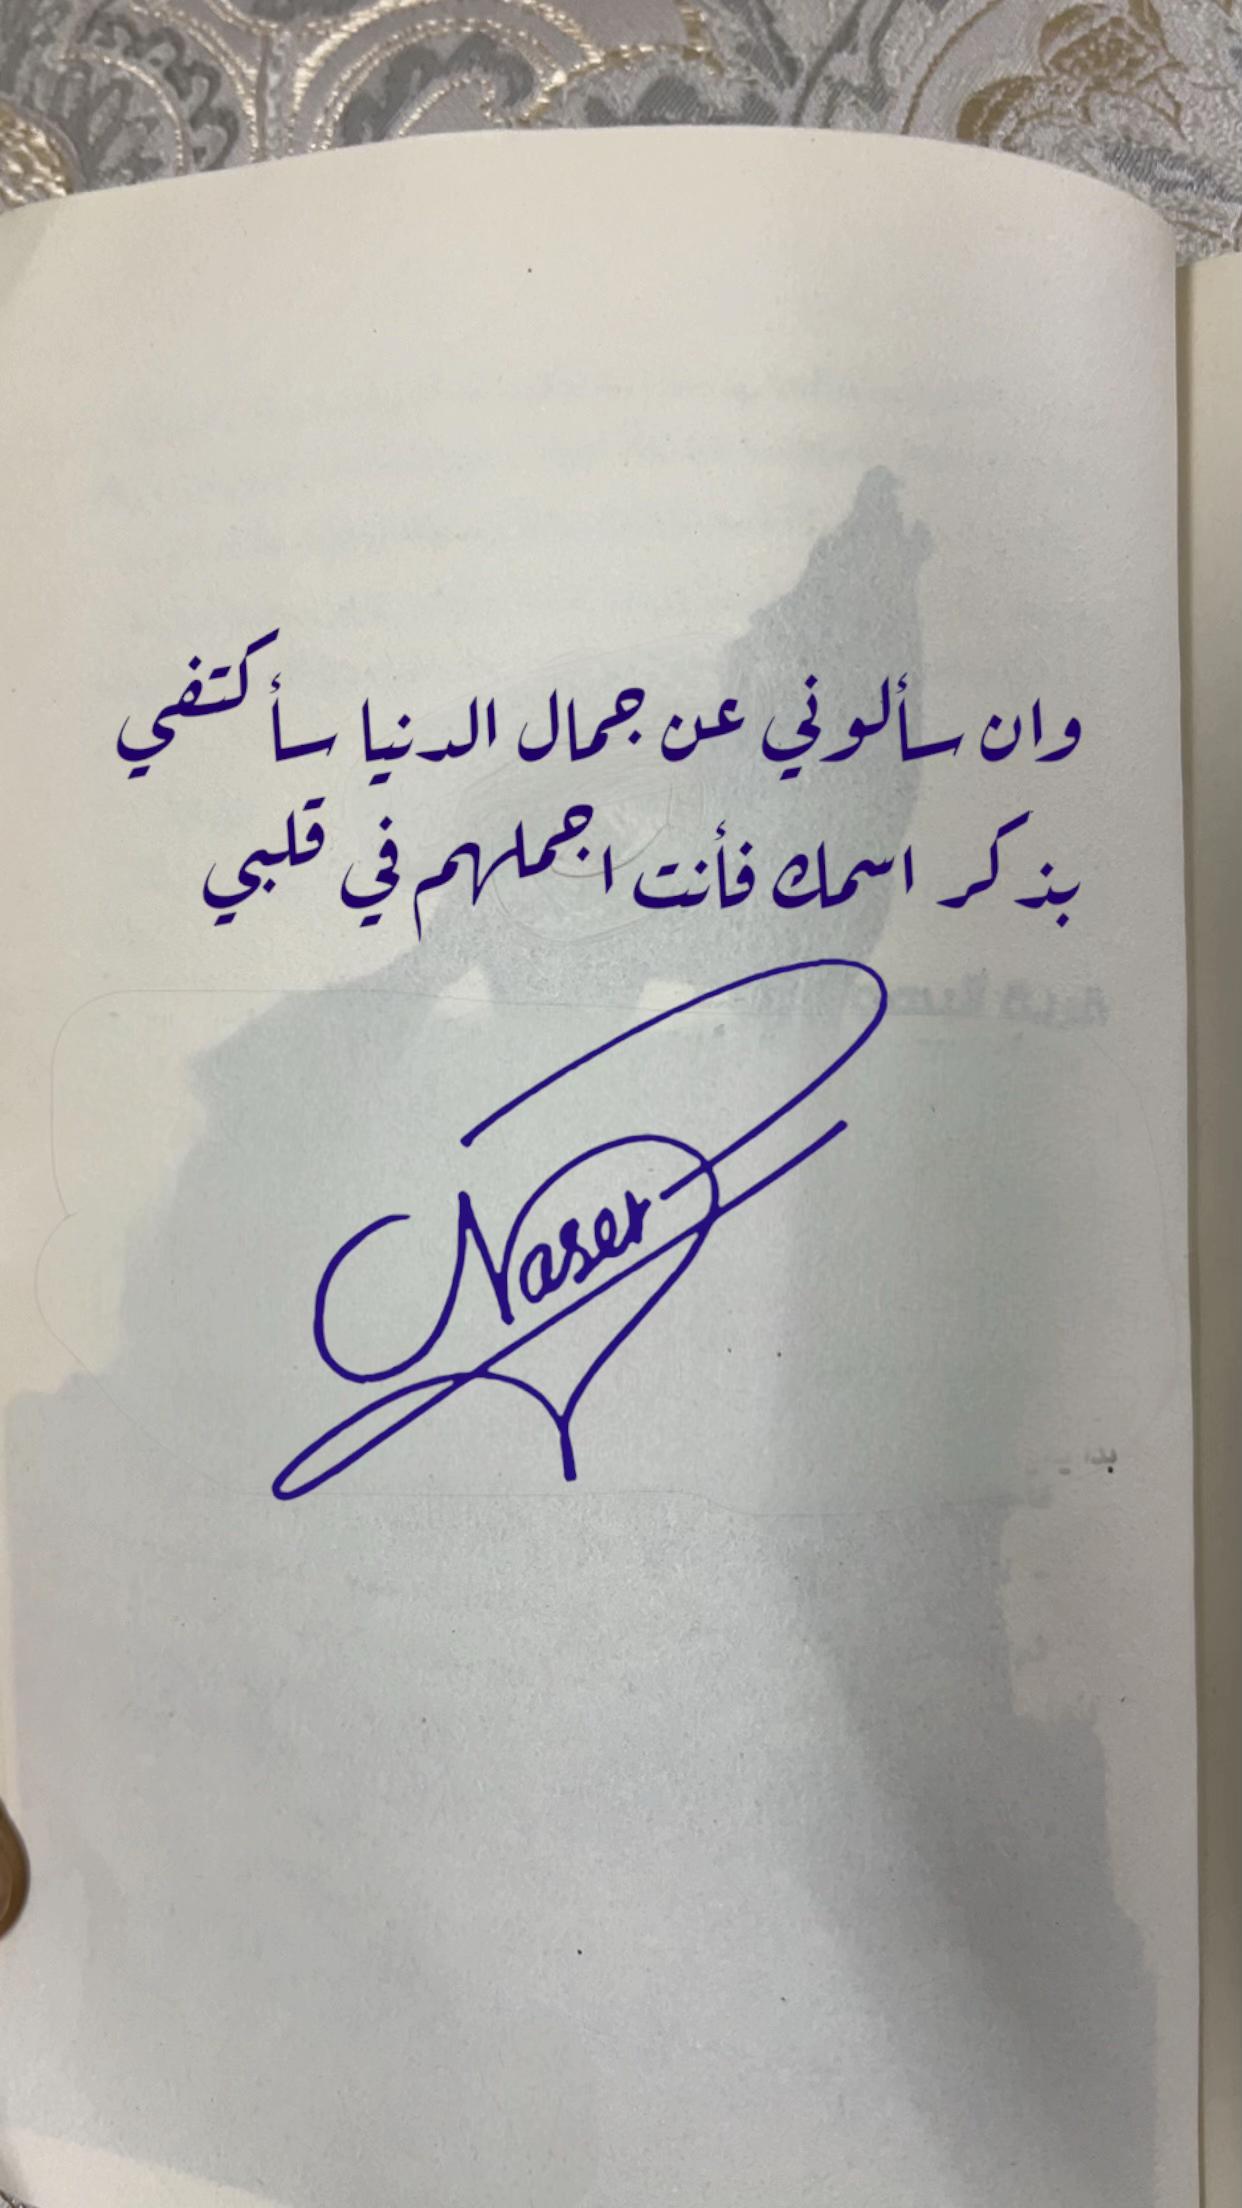 وان سألوني عن جمال الدنيا سأكتفي
بذكر اسمك فأنت اجملهم في قلبي
Naser